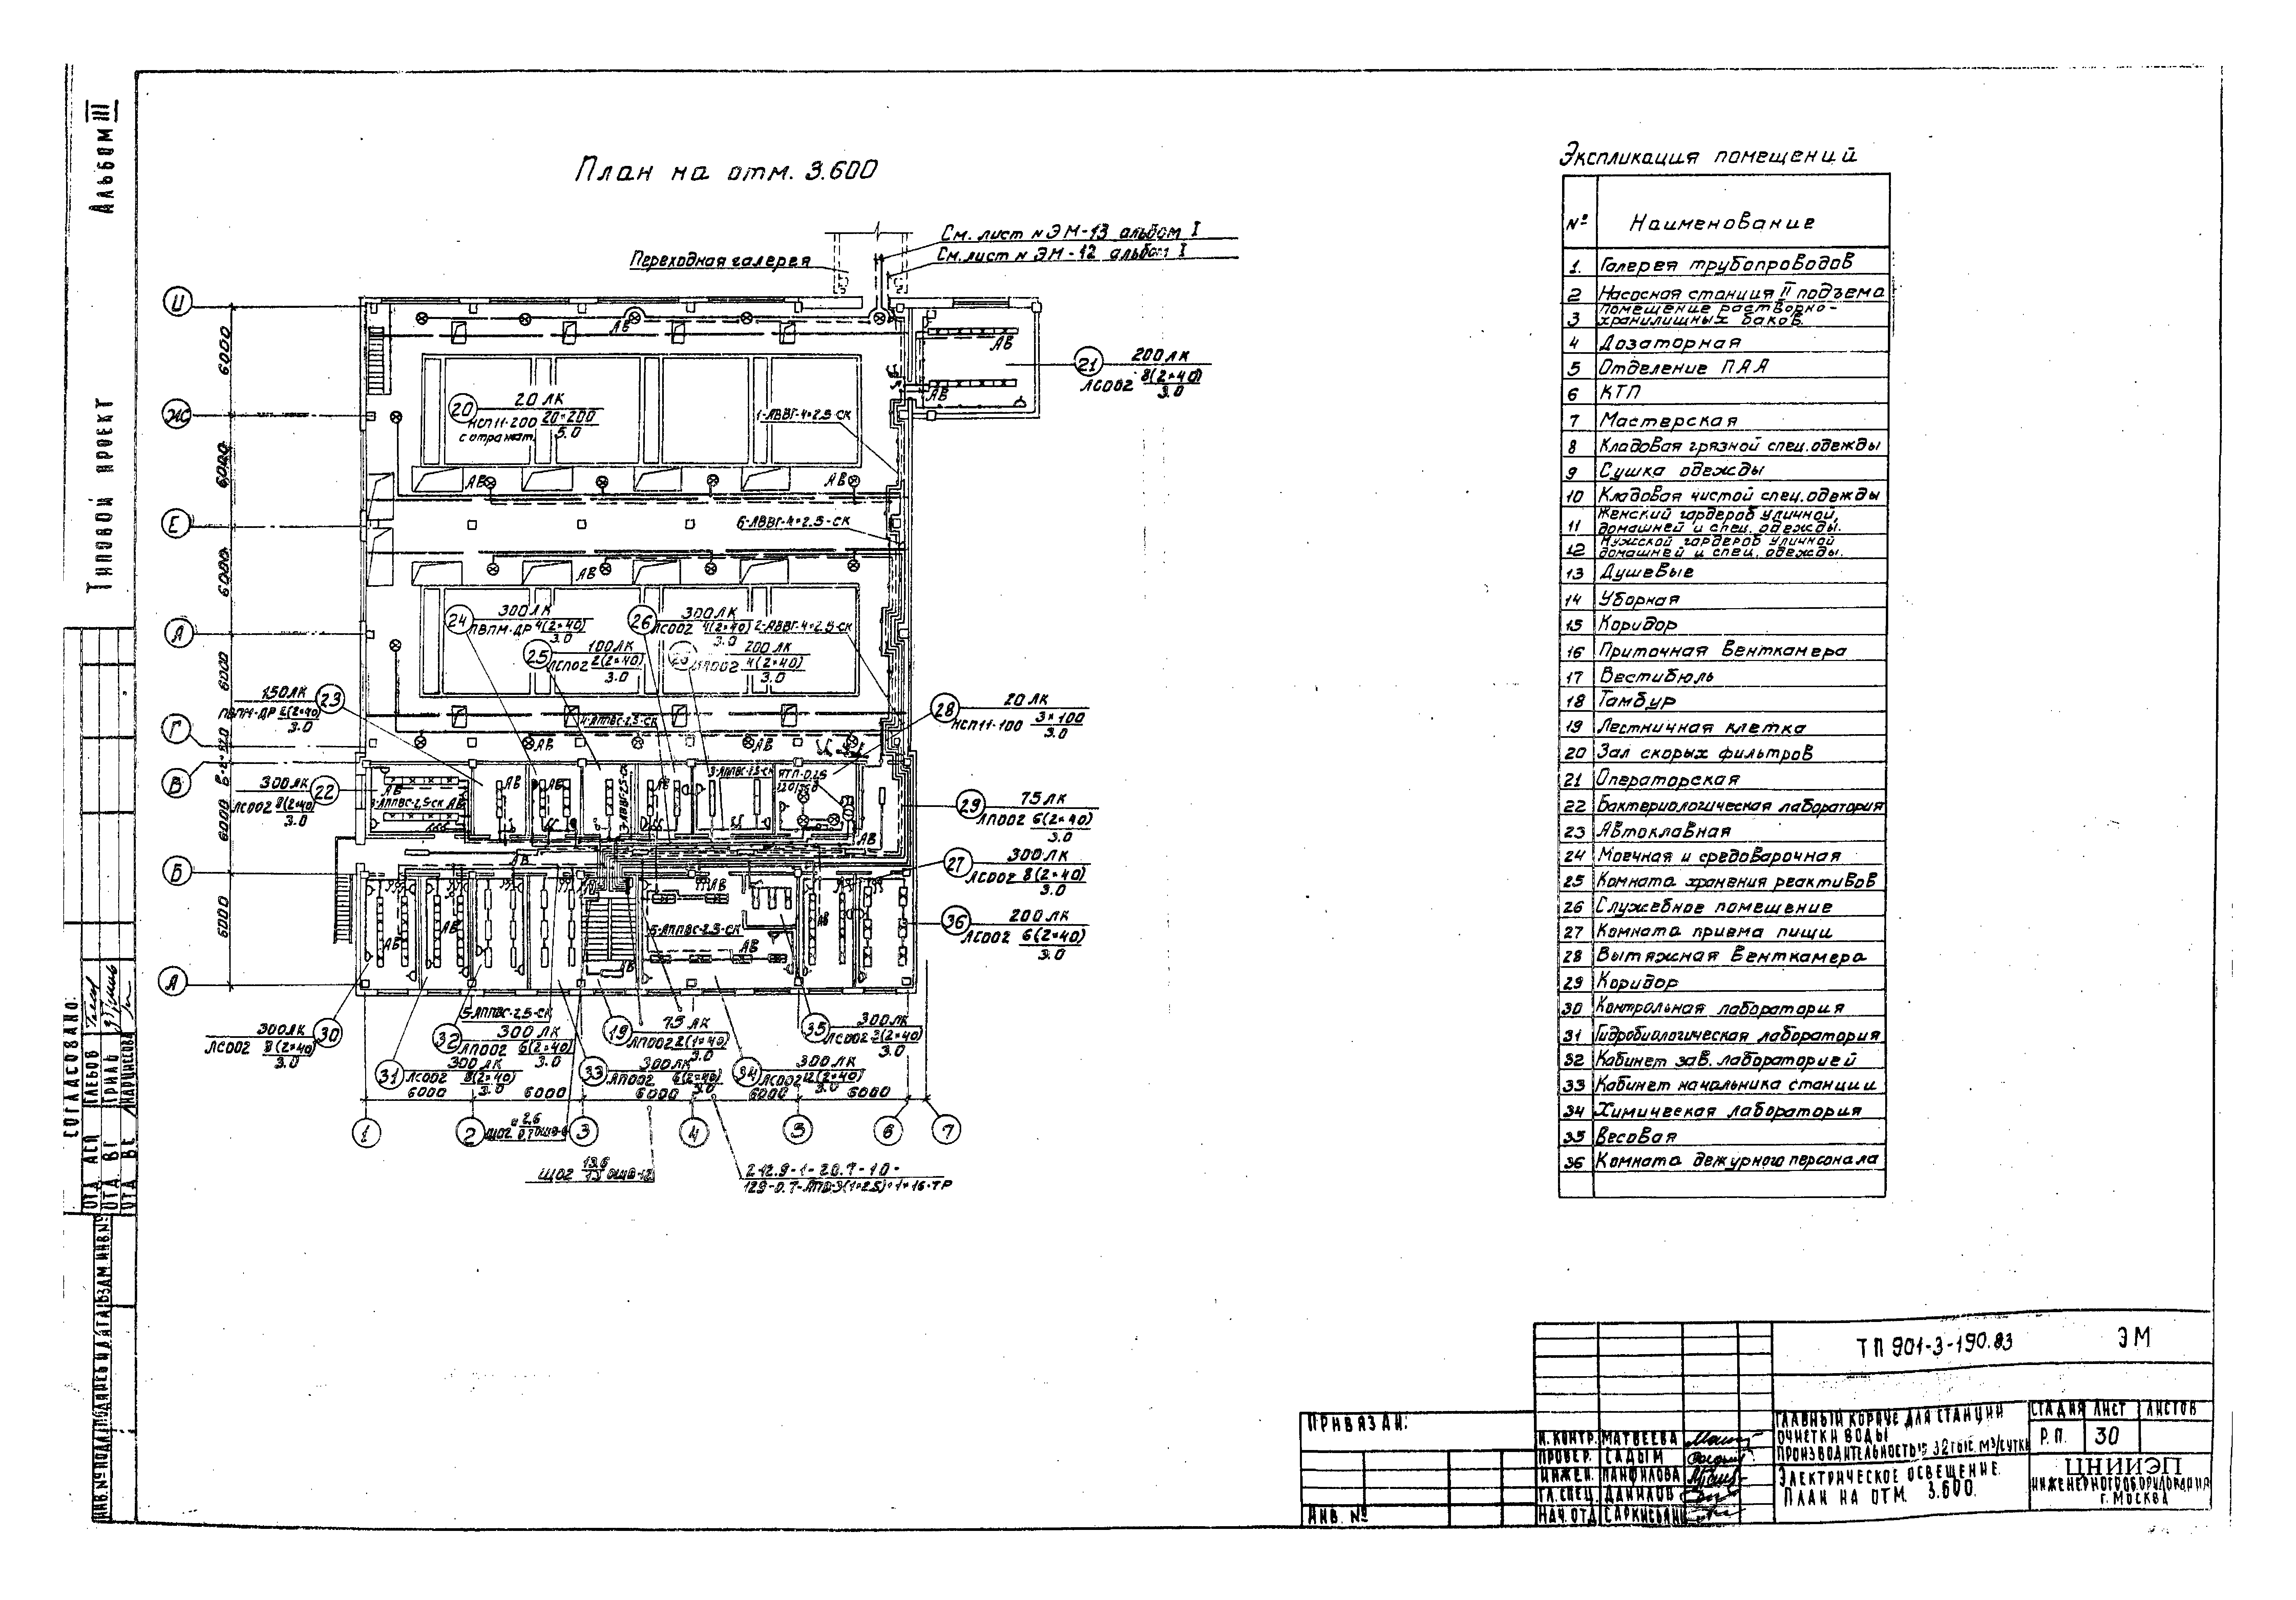 Альбом III
Типовой проект
План на отм. 3.600
См. лист № ЭМ-13 альбом I
См. лист № ЭМ-12 альбом I
Переходная галерея
И
Ж
Е
Д
Г
В
Б
А
6000
6000
6000
6000
6000
6000
20
20 ЛК
НСП11-200 20×200
5.0
с отражат.
1-АВВГ-4×2.5-СК
21
200 ЛК
ЛСО02 8(2×40)
3.0
АВ
6-АВВГ-4×2.5-СК
24
300 ЛК
ПВЛМ-ДР 4(2×40)
3.0
26
300 ЛК
ЛСО02 4(2×40)
3.0
2-АВВГ-4×2.5-СК
25
100 ЛК
2(2×40)
3.0
200 ЛК
4(2×40)
3.0
150 ЛК
23
ПВЛМ-ДР
3.0
28
20 ЛК
НСП11-100 3×100
3.0
300 ЛК
22
ЛСО02 8(2×40)
3.0
29
75 ЛК
ЛПО02 6(2×40)
3.0
27
300 ЛК
ЛСО02 8(2×40)
3.0
36
200 ЛК
ЛСО02 6(2×40)
3.0
5-АППВС-2.5-СК
5-АППВС-2.5-СК
300 ЛК
30
ЛСО02 8(2×40)
3.0
32
300 ЛК
ЛПО02 6(2×40)
3.0
19
75 ЛК
ЛПО02 2(1×40)
3.0
35
300 ЛК
ЛСО02 3(2×40)
3.0
31
300 ЛК
ЛСО02 8(2×40)
3.0
33
300 ЛК
ЛПО02 6(2×40)
3.0
34
300 ЛК
ЛСО02 12(2×40)
3.0
6000 6000 6000 6000 6000
1 2 3 4 5 6 7
ЩО2
ЩО2 13.6
Экспликация помещений
№ Наименование
1. Галерея трубопроводов
2 Насосная станция II подъема
3 Помещение растворно-
хранилищных баков.
4 Дозаторная
5 Отделение ПАА
6 КТП
7 Мастерская
8 Кладовая грязной спец.одежды
9 Сушка одежды
10 Кладовая чистой спец.одежды
11 Женский гардероб уличной,
домашней и спец. одежды.
12 Мужской гардероб уличной
домашней и спец. одежды.
13 Душевые
14 Уборная
15 Коридор
16 Приточная венткамера
17 Вестибюль
18 Тамбур
19 Лестничная клетка
20 Зал скорых фильтров
21 Операторская
22 Бактериологическая лаборатория
23 Автоклавная
24 Моечная и средоварочная
25 Комната хранения реактивов
26 Служебное помещение
27 Комната приема пищи
28 Вытяжная венткамера
29 Коридор
30 Контрольная лаборатория
31 Гидробиологическая лаборатория
32 Кабинет зав. лабораторией
33 Кабинет начальника станции
34 Химическая лаборатория
35 Весовая
36 Комната дежурного персонала
СОГЛАСОВАНО:
ОТД АСП ГЛЕБОВ
ОТД ВГ ГРИЛЬ
ОТД ВЕ НАРЦИССОВА
ИНВ.№ ПОДЛ ПОДПИСЬ И ДАТА ВЗАМ.ИНВ.№
ПРИВЯЗАН:
ИНВ. №
ТП 901-3-190.83 ЭМ
Н. КОНТР. МАТВЕЕВА
ПРОВЕР. САДЫМ
ИНЖЕН. ПАНФИЛОВА
ГЛ.СПЕЦ. ДАНИЛОВ
НАЧ. ОТД САРКИСЬЯНЦ
ГЛАВНЫЙ КОРПУС ДЛЯ СТАНЦИИ
ОЧИСТКИ ВОДЫ
ПРОИЗВОДИТЕЛЬНОСТЬЮ 32 ТЫС. М3/СУТКИ
СТАДИЯ ЛИСТ ЛИСТОВ
Р.П. 30
ЭЛЕКТРИЧЕСКОЕ ОСВЕЩЕНИЕ.
ПЛАН НА ОТМ. 3.600.
ЦНИИЭП
ИНЖЕНЕРНОГО ОБОРУДОВАНИЯ
г. МОСКВА